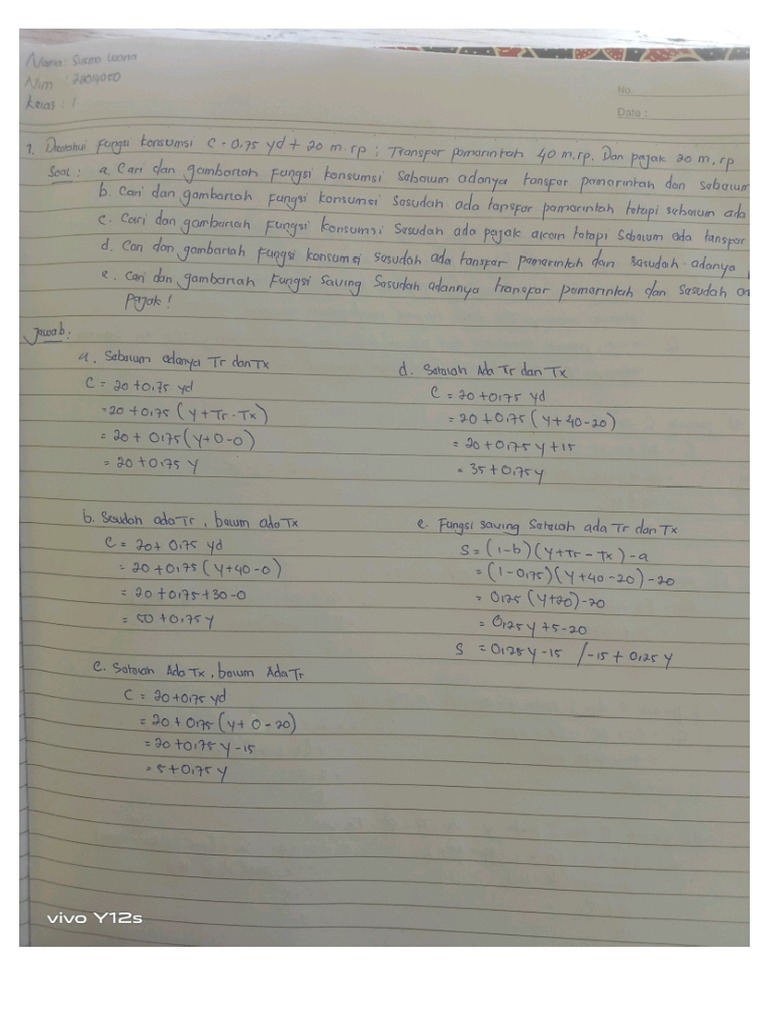 Nama: Susan
Nim : 22014050
Kelas : 1
No.
Date :
1. Diketahui fungsi konsumsi C = 0,75 yd + 20 m.rp ; Transfer pamarintah 40 m.rp. Dan pajak 20 m, rp
Soal : a. Cari dan gambarlah fungsi konsumsi sabalum adanya tansfar pamarintah dan sabalum
b. Cari dan gambarlah fungsi konsumsi sasudah ada tansfar pamarintah tatapi sabalum ada
c. Cari dan gambarlah fungsi konsumsi sasudah ada pajak akan tatapi sabalum ada tansfar
d. Cari dan gambarlah fungsi konsumsi sasudah ada tansfar pamarintah dan sasudah adanya
e. Cari dan gambarlah fungsi saving sasudah adannya transfar pamarintah dan sasudah
pajak !
Jawab :
a. Sabalum adanya Tr dan Tx
C = 20 + 0,75 yd
= 20 + 0,75 (y + Tr - Tx)
= 20 + 0,75 (y + 0 - 0)
= 20 + 0,75 y
b. Sasudah ada Tr, balum ada Tx
C = 20 + 0,75 yd
= 20 + 0,75 (y + 40 - 0)
= 20 + 0,75 + 30 - 0
= 50 + 0,75 y
c. Satalah Ada Tx, balum Ada Tr
C = 20 + 0,75 yd
= 20 + 0,75 (y + 0 - 20)
= 20 + 0,75 y - 15
= 5 + 0,75 y
d. Satalah Ada Tr dan Tx
C = 20 + 0,75 yd
= 20 + 0,75 (y + 40 - 20)
= 20 + 0,75 y + 15
= 35 + 0,75 y
e. Fungsi saving Satalah ada Tr dan Tx
S = (1 - b) (y + Tr - Tx) - a
= (1 - 0,75) (y + 40 - 20) - 20
= 0,25 (y + 20) - 20
= 0,25 y + 5 - 20
S = 0,25 y - 15 / -15 + 0,25 y
vivo Y12s